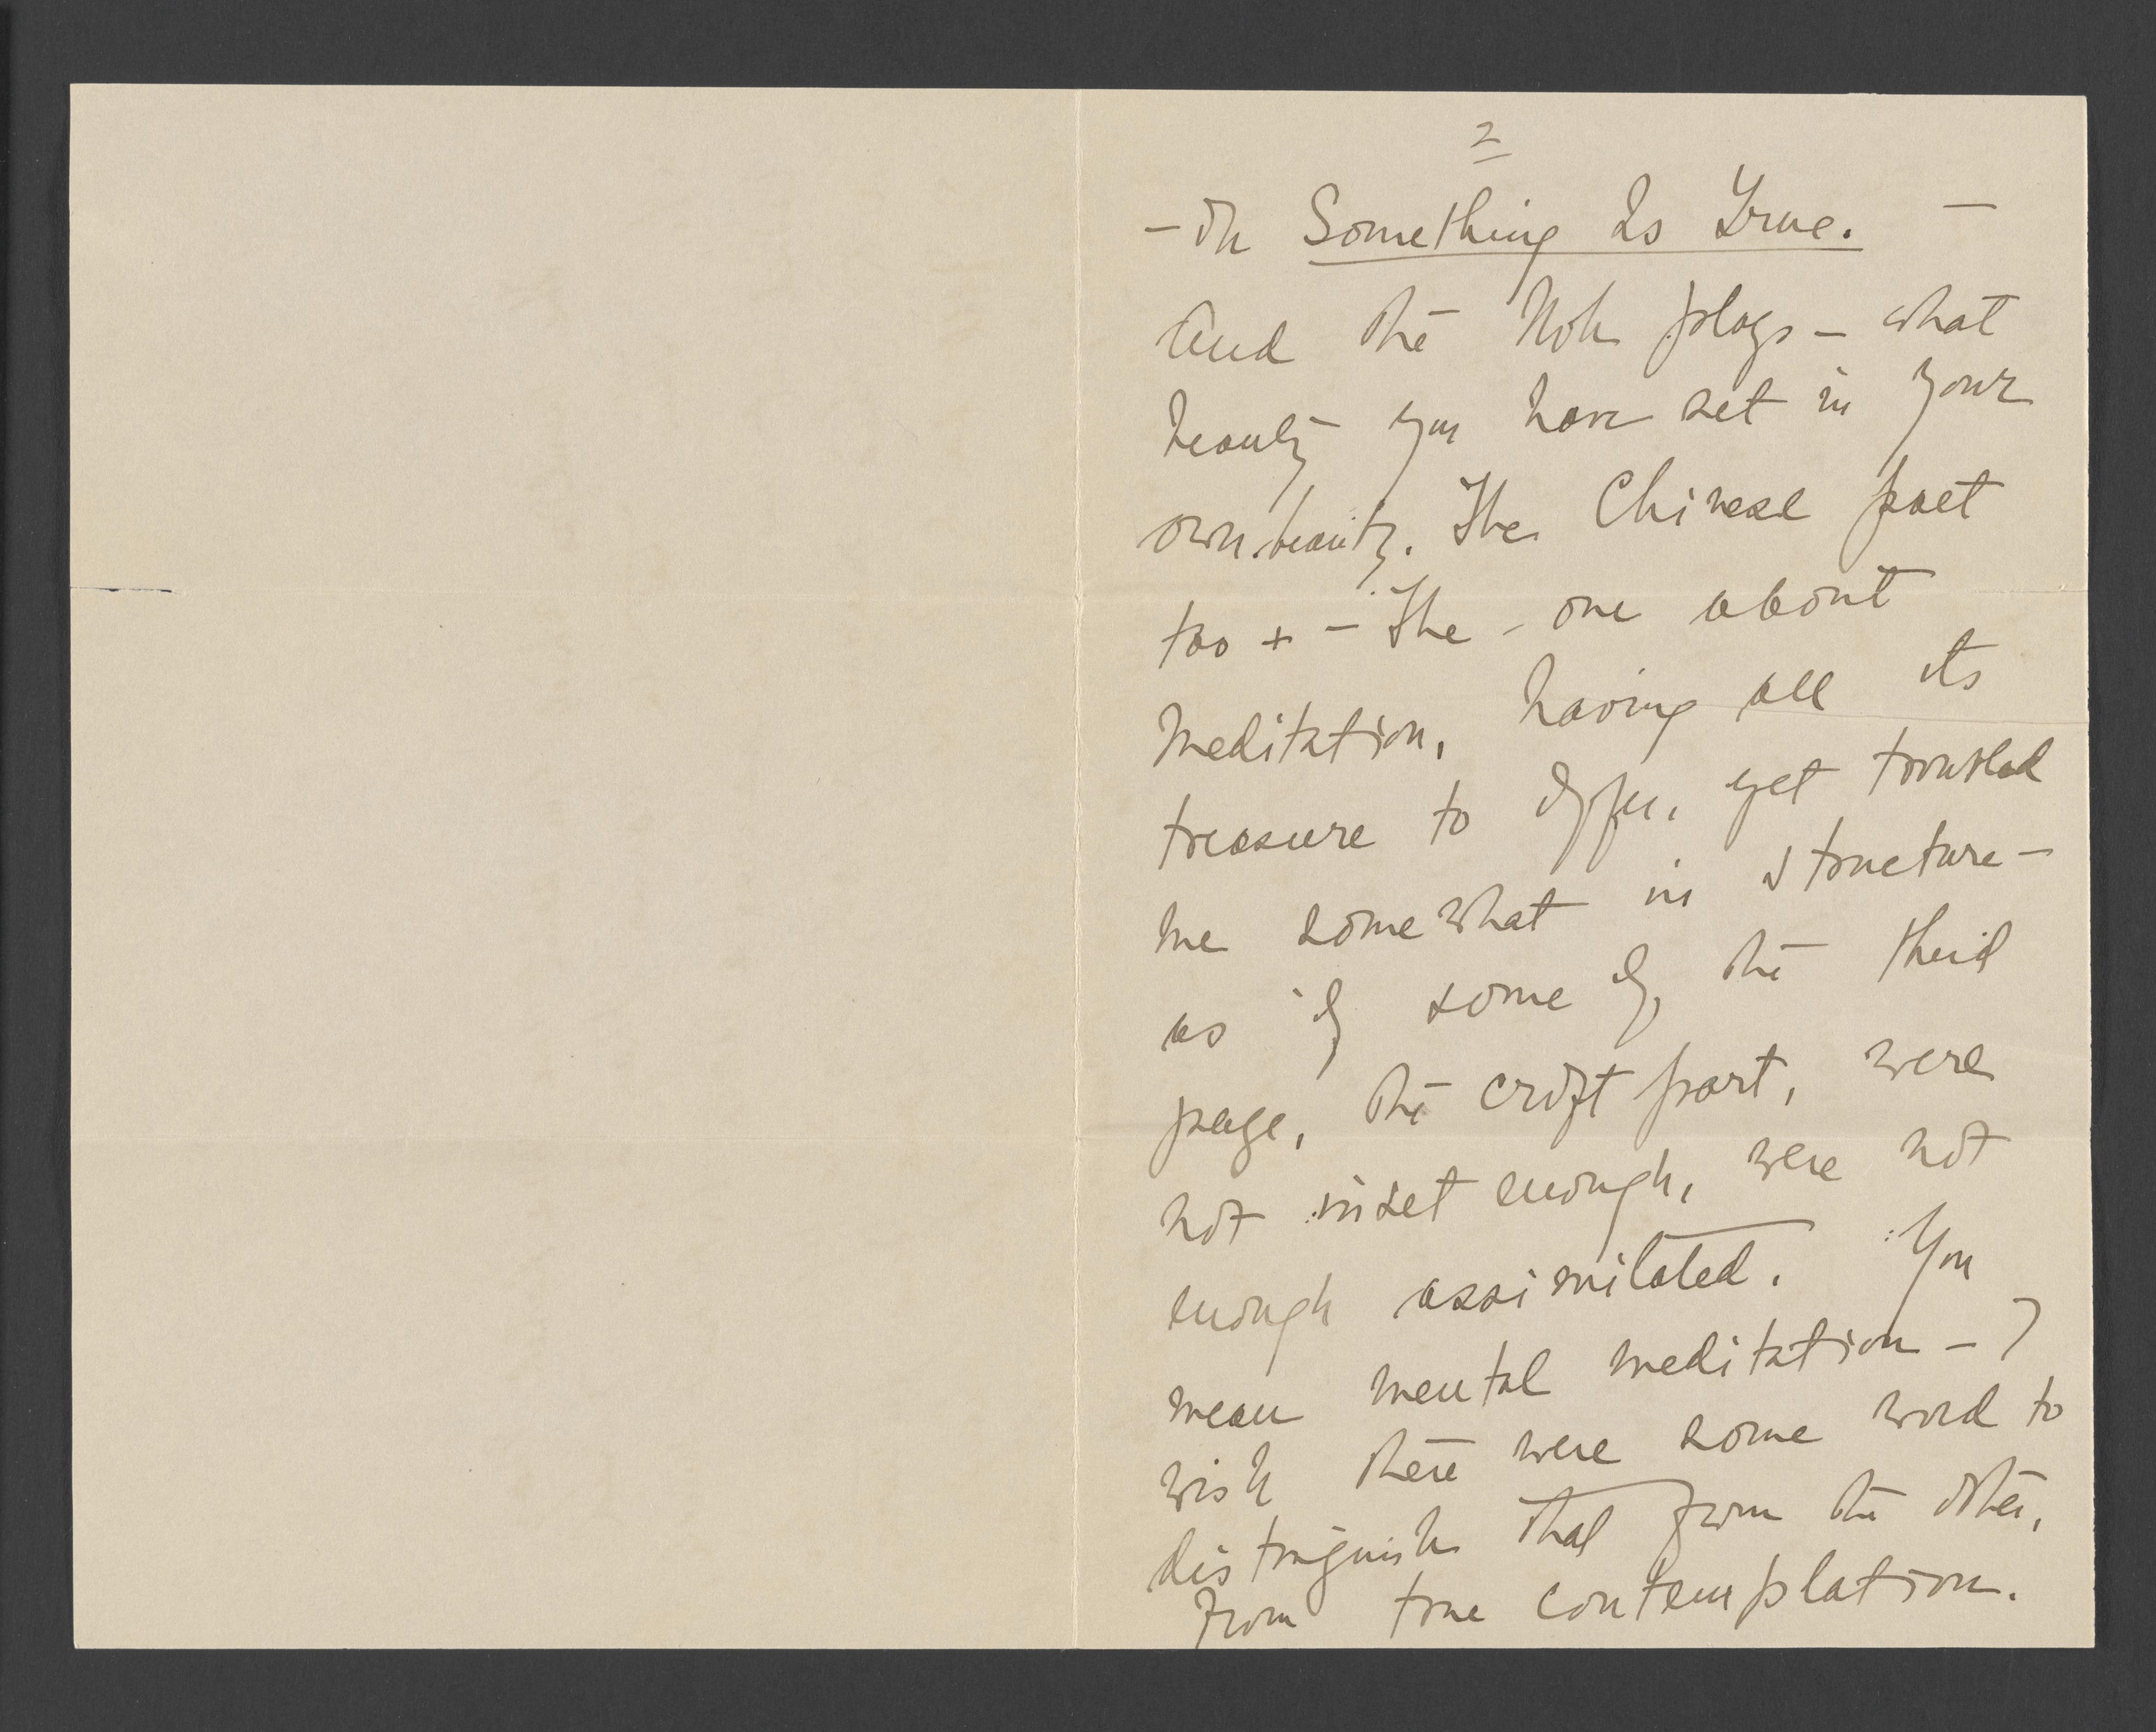 2
- In Something Is True. -
And the Noh plays - what
beauty you have set in your
own beauty. The Chinese poet
too + - The - one about
meditation, having all its
treasure to offer, yet troubled
me somewhat in structure -
as if some of the third
page, the craft part, were
not inset enough, were not
enough assimilated. You
mean mental meditation - I
wish there were some word to
distinguish that from the other,
from true contemplation.